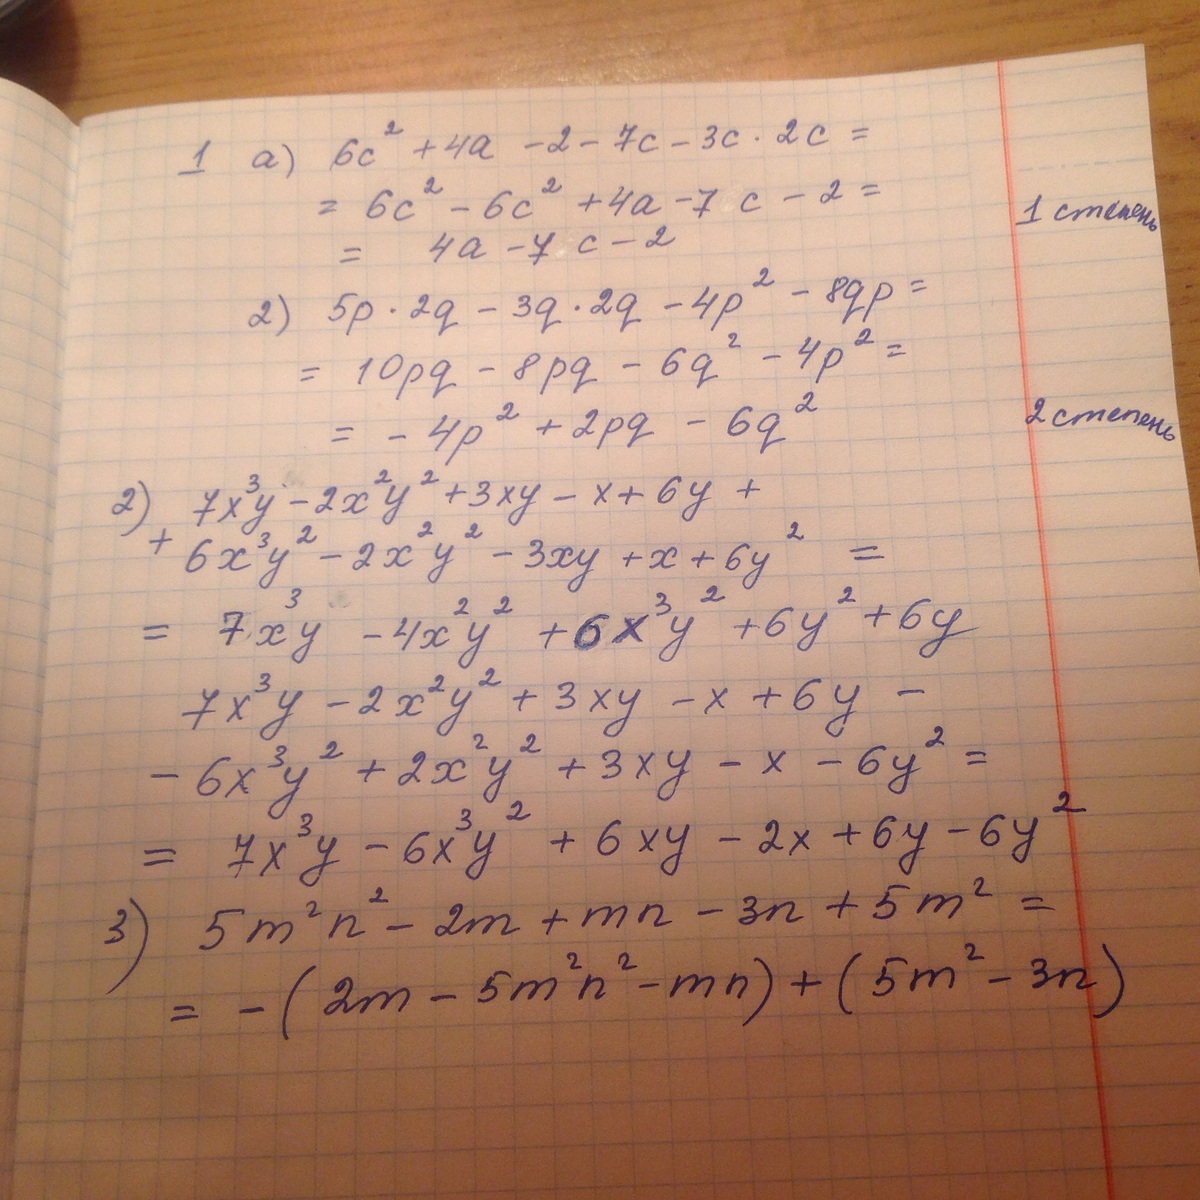 1 а) 6c² + 4a - 2 - 7c - 3c · 2c =
= 6c² - 6c² + 4a - 7 c - 2 =
1 степень
= 4a - 7 c - 2
2) 5p · 2q - 3q · 2q - 4p² - 8qp =
= 10pq - 8pq - 6q² - 4p² =
= - 4p² + 2pq - 6q²
2 степень
2) 7x³y - 2x²y² + 3xy - x + 6y +
+ 6x³y² - 2x²y² - 3xy + x + 6y² =
= 7x³y - 4x²y² + 6x³y² + 6y² + 6y
7x³y - 2x²y² + 3xy - x + 6y -
- 6x³y² + 2x²y² + 3xy - x - 6y² =
= 7x³y - 6x³y² + 6xy - 2x + 6y - 6y²
3) 5m²n² - 2m + mn - 3n + 5m² =
= - (2m - 5m²n² - mn) + (5m² - 3n)